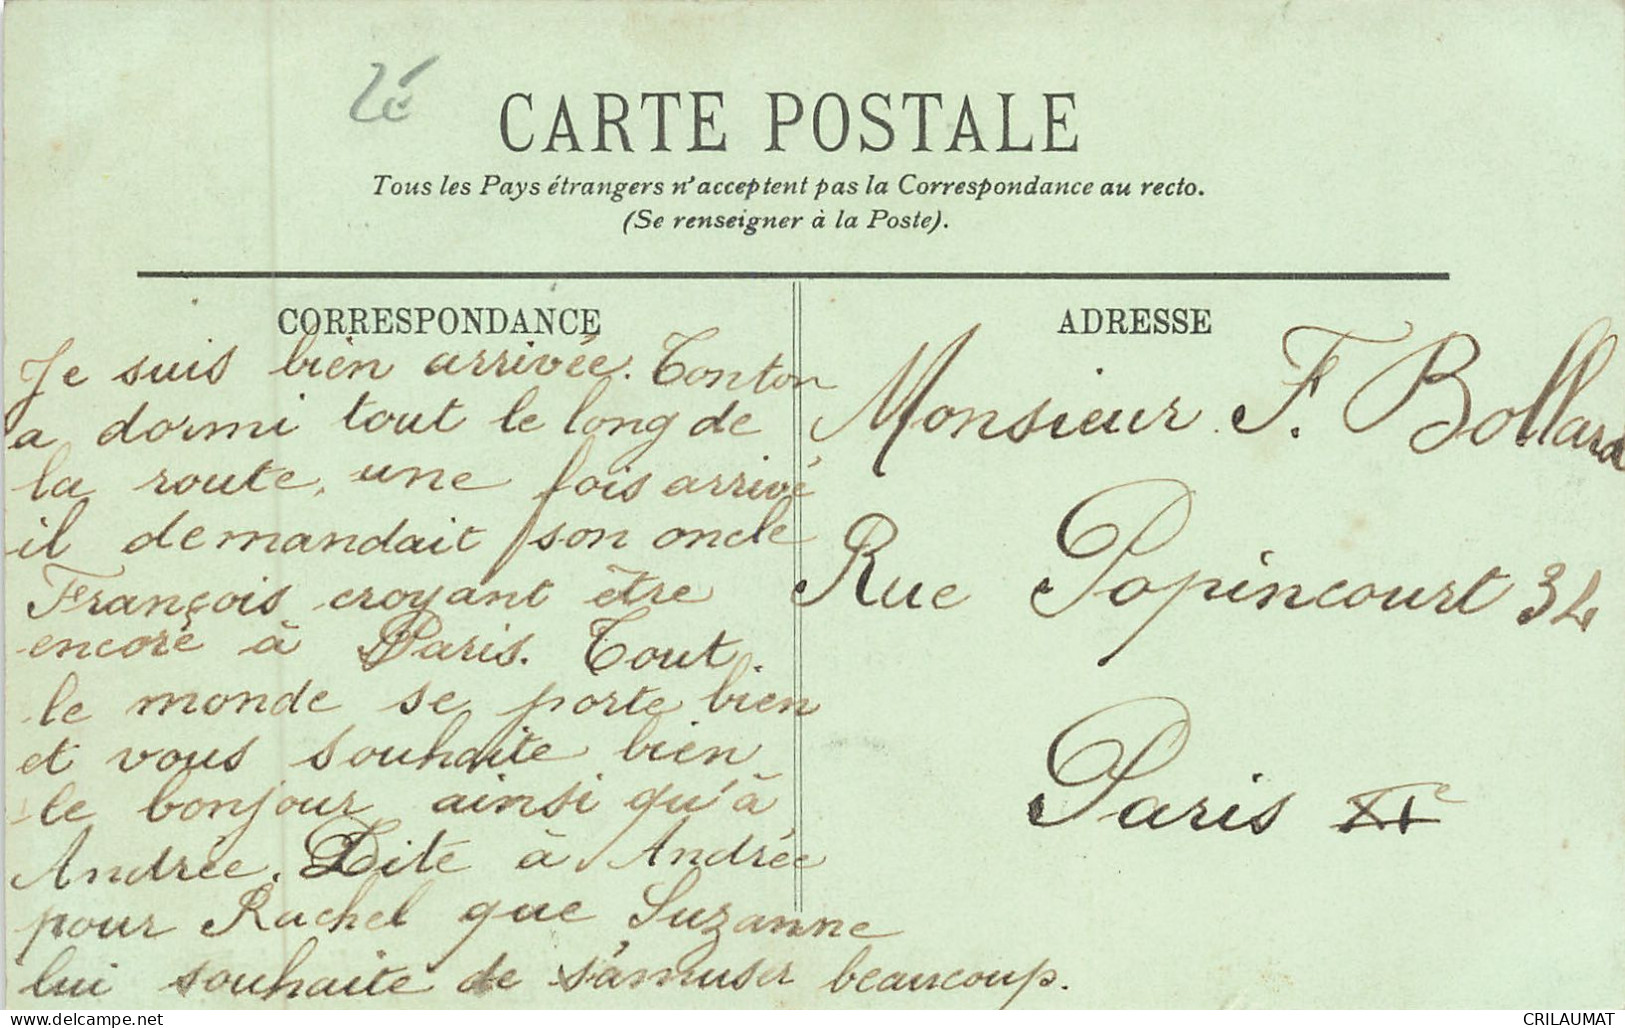 2é
CARTE POSTALE
Tous les Pays étrangers n'acceptent pas la Correspondance au recto.
(Se renseigner à la Poste).
CORRESPONDANCE
Je suis bien arrivée. Tonton
a dormi tout le long de
la route, une fois arrivé
il demandait son oncle
François croyant être
encore à Paris. Tout
le monde se porte bien
et vous souhaite bien
le bonjour ainsi qu'à
Andrée. Dite à Andrée
pour Rachel que Suzanne
lui souhaite de s'amuser beaucoup.
ADRESSE
Monsieur F. Bollard
Rue Popincourt 34
Paris XIe
CRILAUMAT